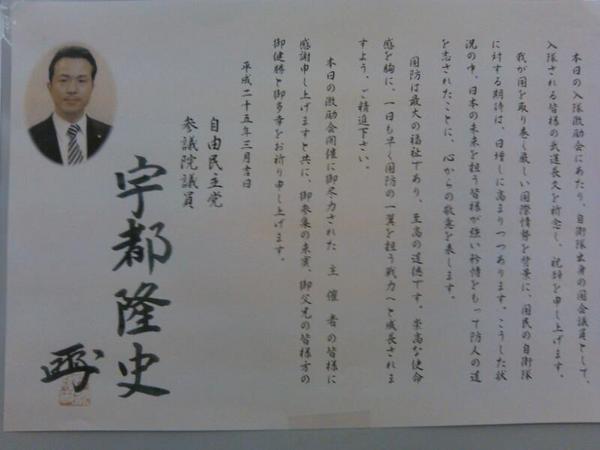 本日の入隊激励会にあたり、自衛隊出身の国会議員として、
入隊される皆様の武運長久を祈念し、祝辞を申し上げます。
我が国を取り巻く厳しい国際情勢を背景に、国民の自衛隊
に対する期待は、日増しに高まりつつあります。こうした状
況の中、日本の未来を担う皆様が強い矜恃をもって防人の道
を志されたことに、心からの敬意を表します。
国防は最大の福祉であり、至高の道徳です。崇高な使命
感を胸に、一日も早く国防の一翼を担う戦力へと成長されま
すよう、ご精進下さい。
本日の激励会開催に御尽力された主催者の皆様に
感謝申し上げますと共に、御参集の来賓、御父兄の皆様方の
御健勝と御多幸をお祈り申し上げます。
平成二十五年三月吉日
自由民主党
参議院議員
宇都隆史